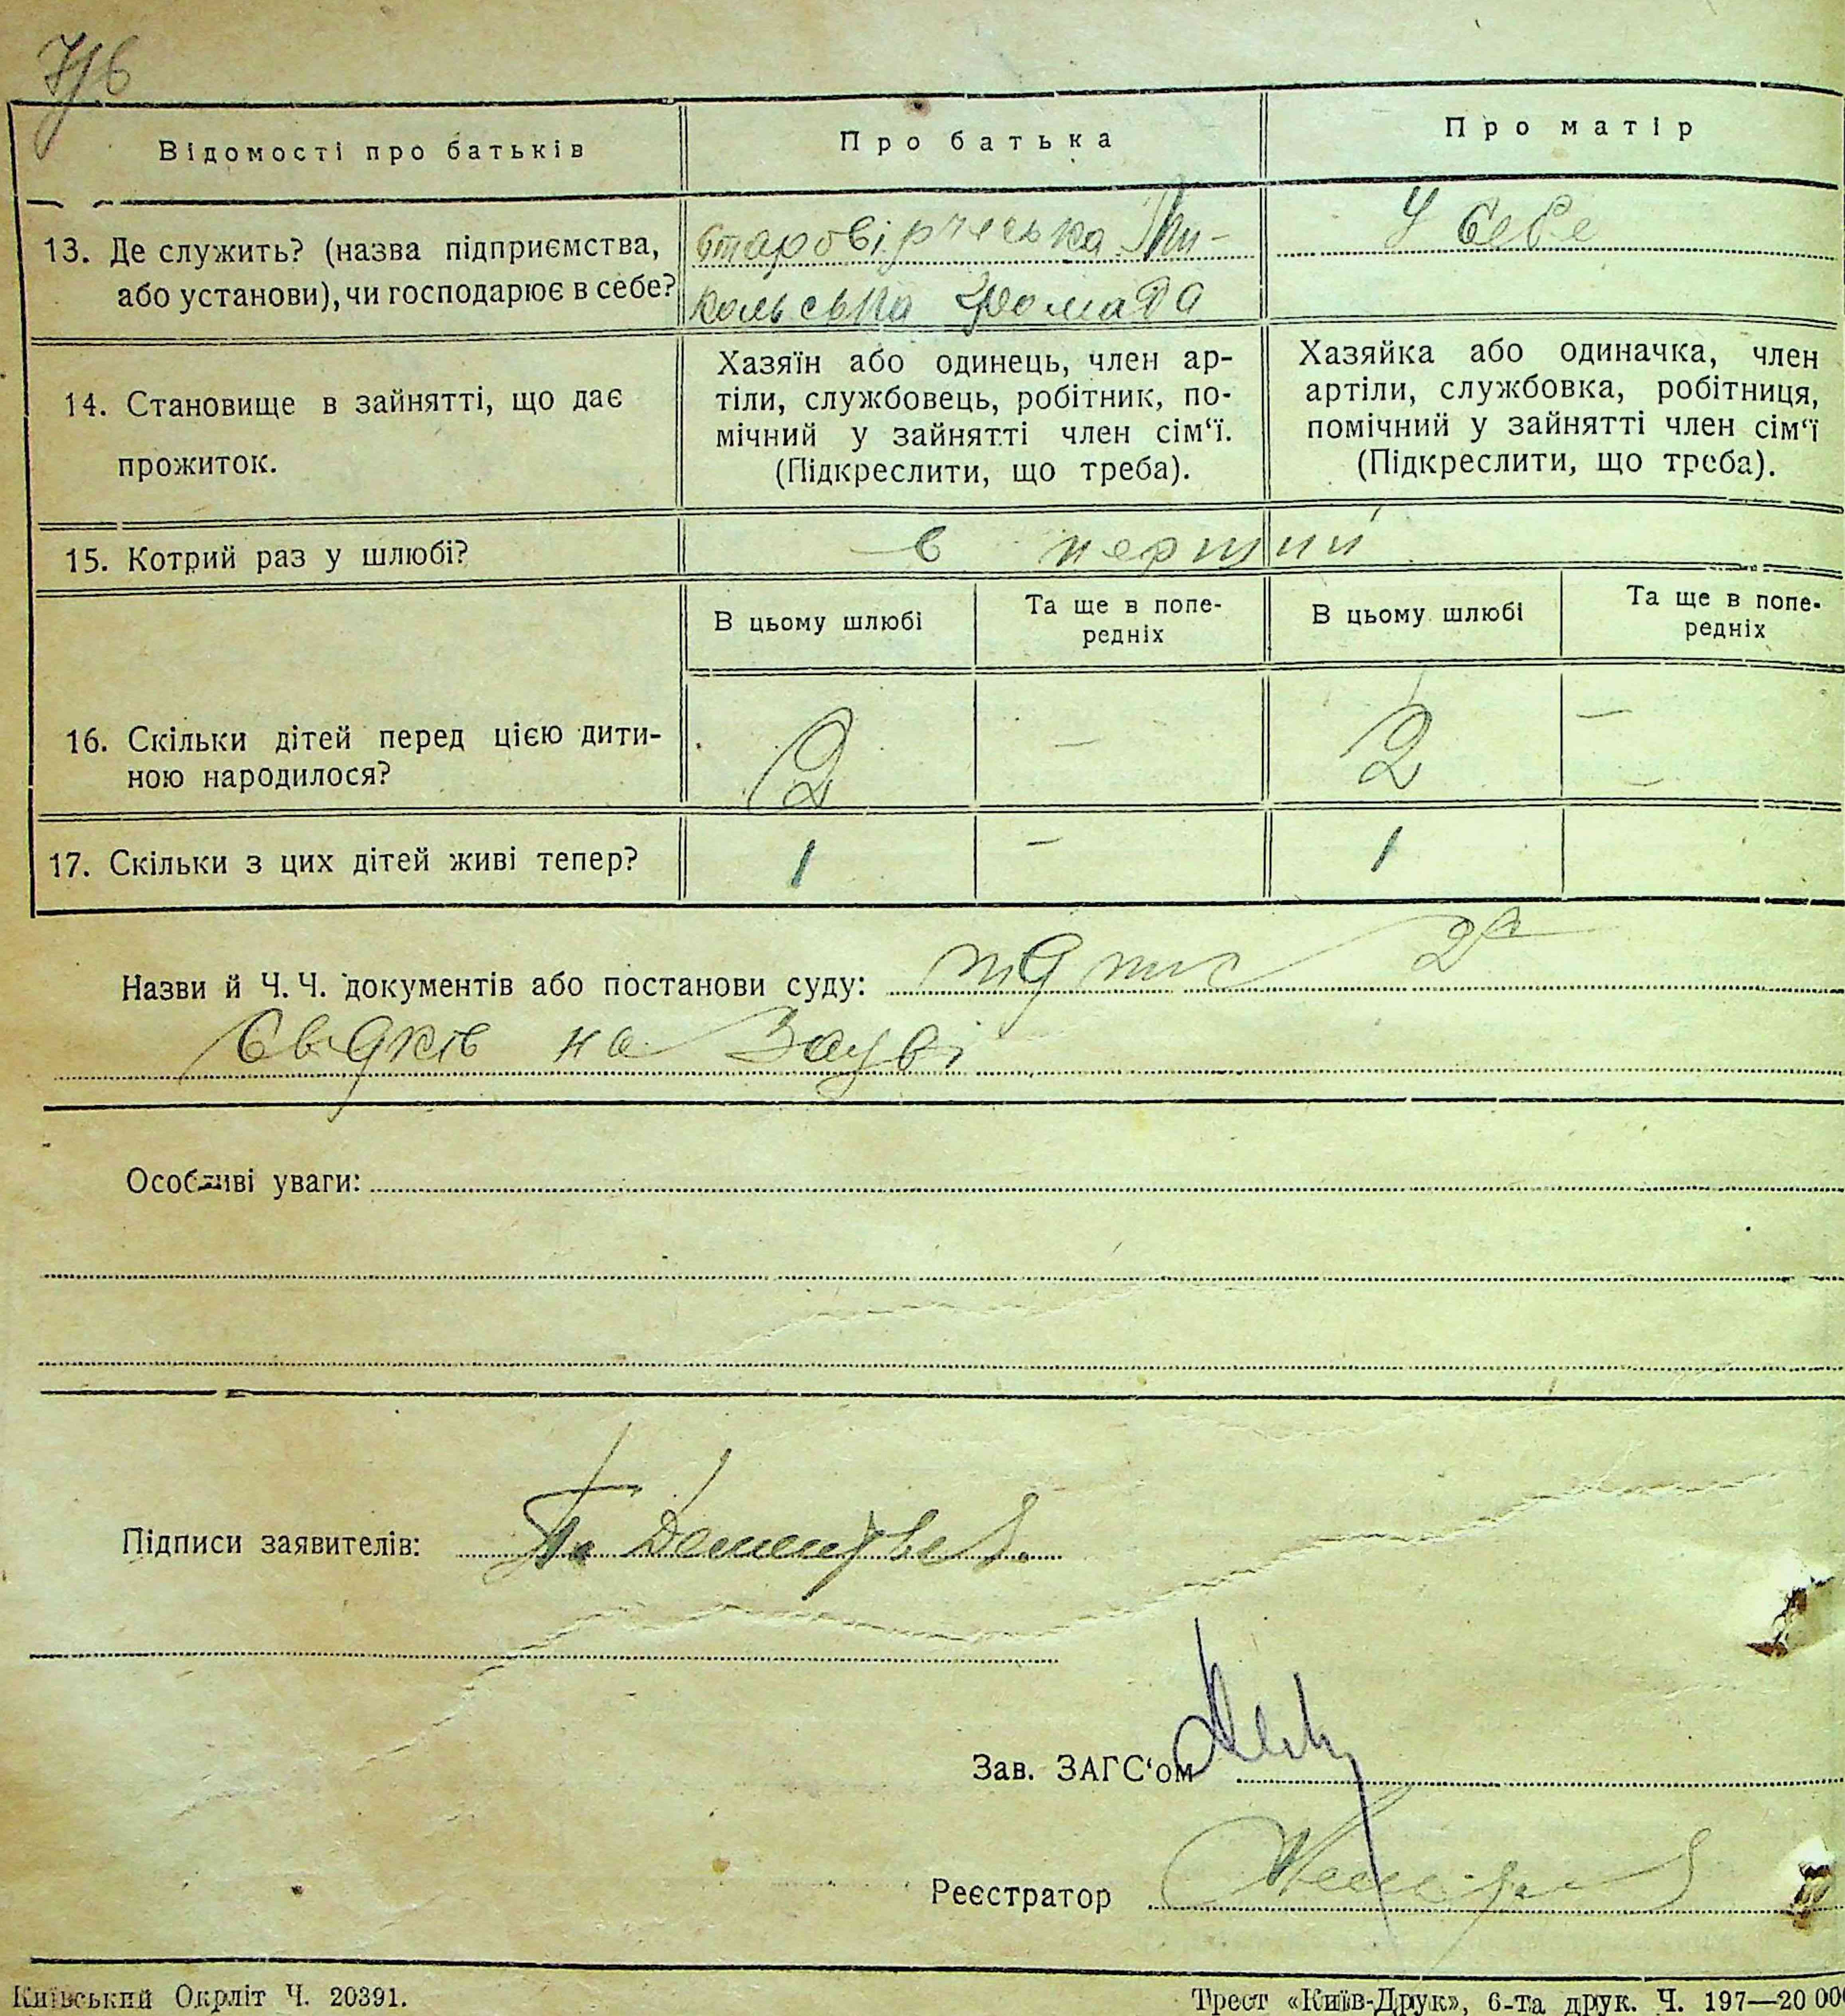 Відомості про батьків
Про батька
Про матір
13. Де служить? (назва підприємства,
або установи), чи господарює в себе?
Старовірчеська Ми-
кольська громада
У себе
14. Становище в зайнятті, що дає
прожиток.
Хазяїн або одинець, член ар-
тіли, службовець, робітник, по-
мічний у зайнятті член сім‘ї.
(Підкреслити, що треба).
Хазяйка або одиначка, член
артіли, службовка, робітниця,
помічний у зайнятті член сім‘ї
(Підкреслити, що треба).
15. Котрий раз у шлюбі?
в перший
В цьому шлюбі
Та ще в попе-
редніх
В цьому шлюбі
Та ще в попе-
редніх
16. Скільки дітей перед цією дити-
ною народилося?
2 — 2 —
17. Скільки з цих дітей живі тепер?
1 — 1
Назви й Ч. Ч. документів або постанови суду: підпис 2х
свідків на заяві
Особливі уваги:
Підписи заявителів:
Зав. ЗАГС‘ом
Реєстратор
Київський Окрліт Ч. 20391.
Трест «Київ-Друк», 6-та друк. Ч. 197—20 00